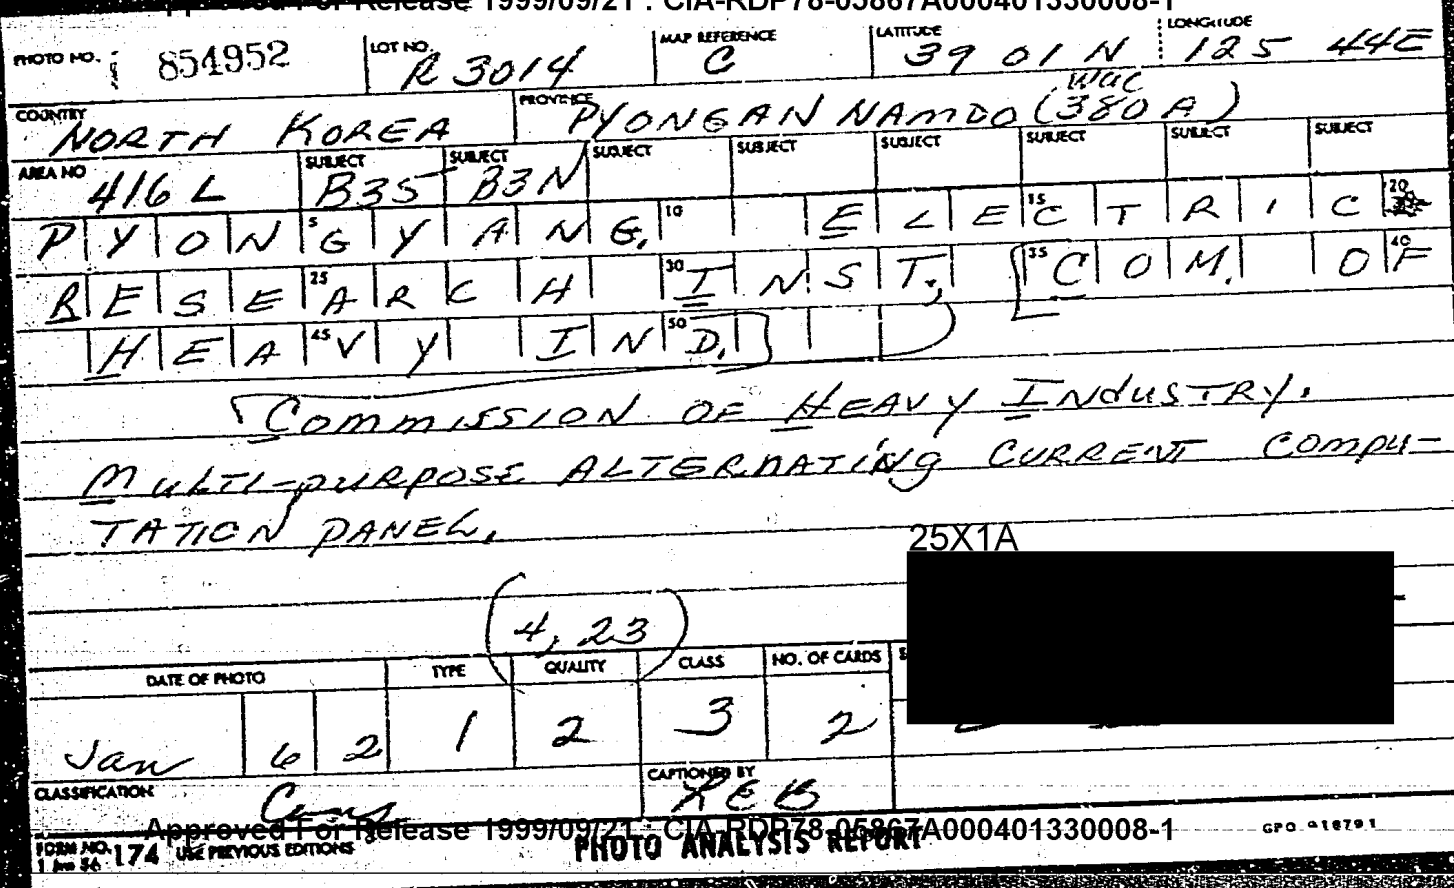 Approved For Release 1999/09/21 : CIA-RDP78-05867A000401330008-1
PHOTO NO. 854952 LOT NO. R 3014 MAP REFERENCE C LATITUDE 39 01 N LONGITUDE 125 44E
COUNTRY NORTH KOREA PROVINCE PYONGAN NAMDO (WAC 380 A)
AREA NO 416 L SUBJECT B35 SUBJECT B3N SUBJECT SUBJECT SUBJECT SUBJECT SUBJECT SUBJECT
PYONGYANG. ELECTRIC 5 10 15 20
RESEARCH INST., [COM. OF 25 30 35 40
HEAVY IND.] 45 50
[COMMISSION OF HEAVY INDUSTRY.
MULTI-PURPOSE ALTERNATING CURRENT COMPU-
TATION PANEL.
25X1A
(4, 23)
DATE OF PHOTO TYPE QUALITY CLASS NO. OF CARDS
Jan 6 2 1 2 3 2
CLASSIFICATION CAPTIONED BY REB
Approved For Release 1999/09/21 : CIA-RDP78-05867A000401330008-1
FORM NO. 174 USE PREVIOUS EDITIONS PHOTO ANALYSIS REPORT GPO 918791
1 Jan 56